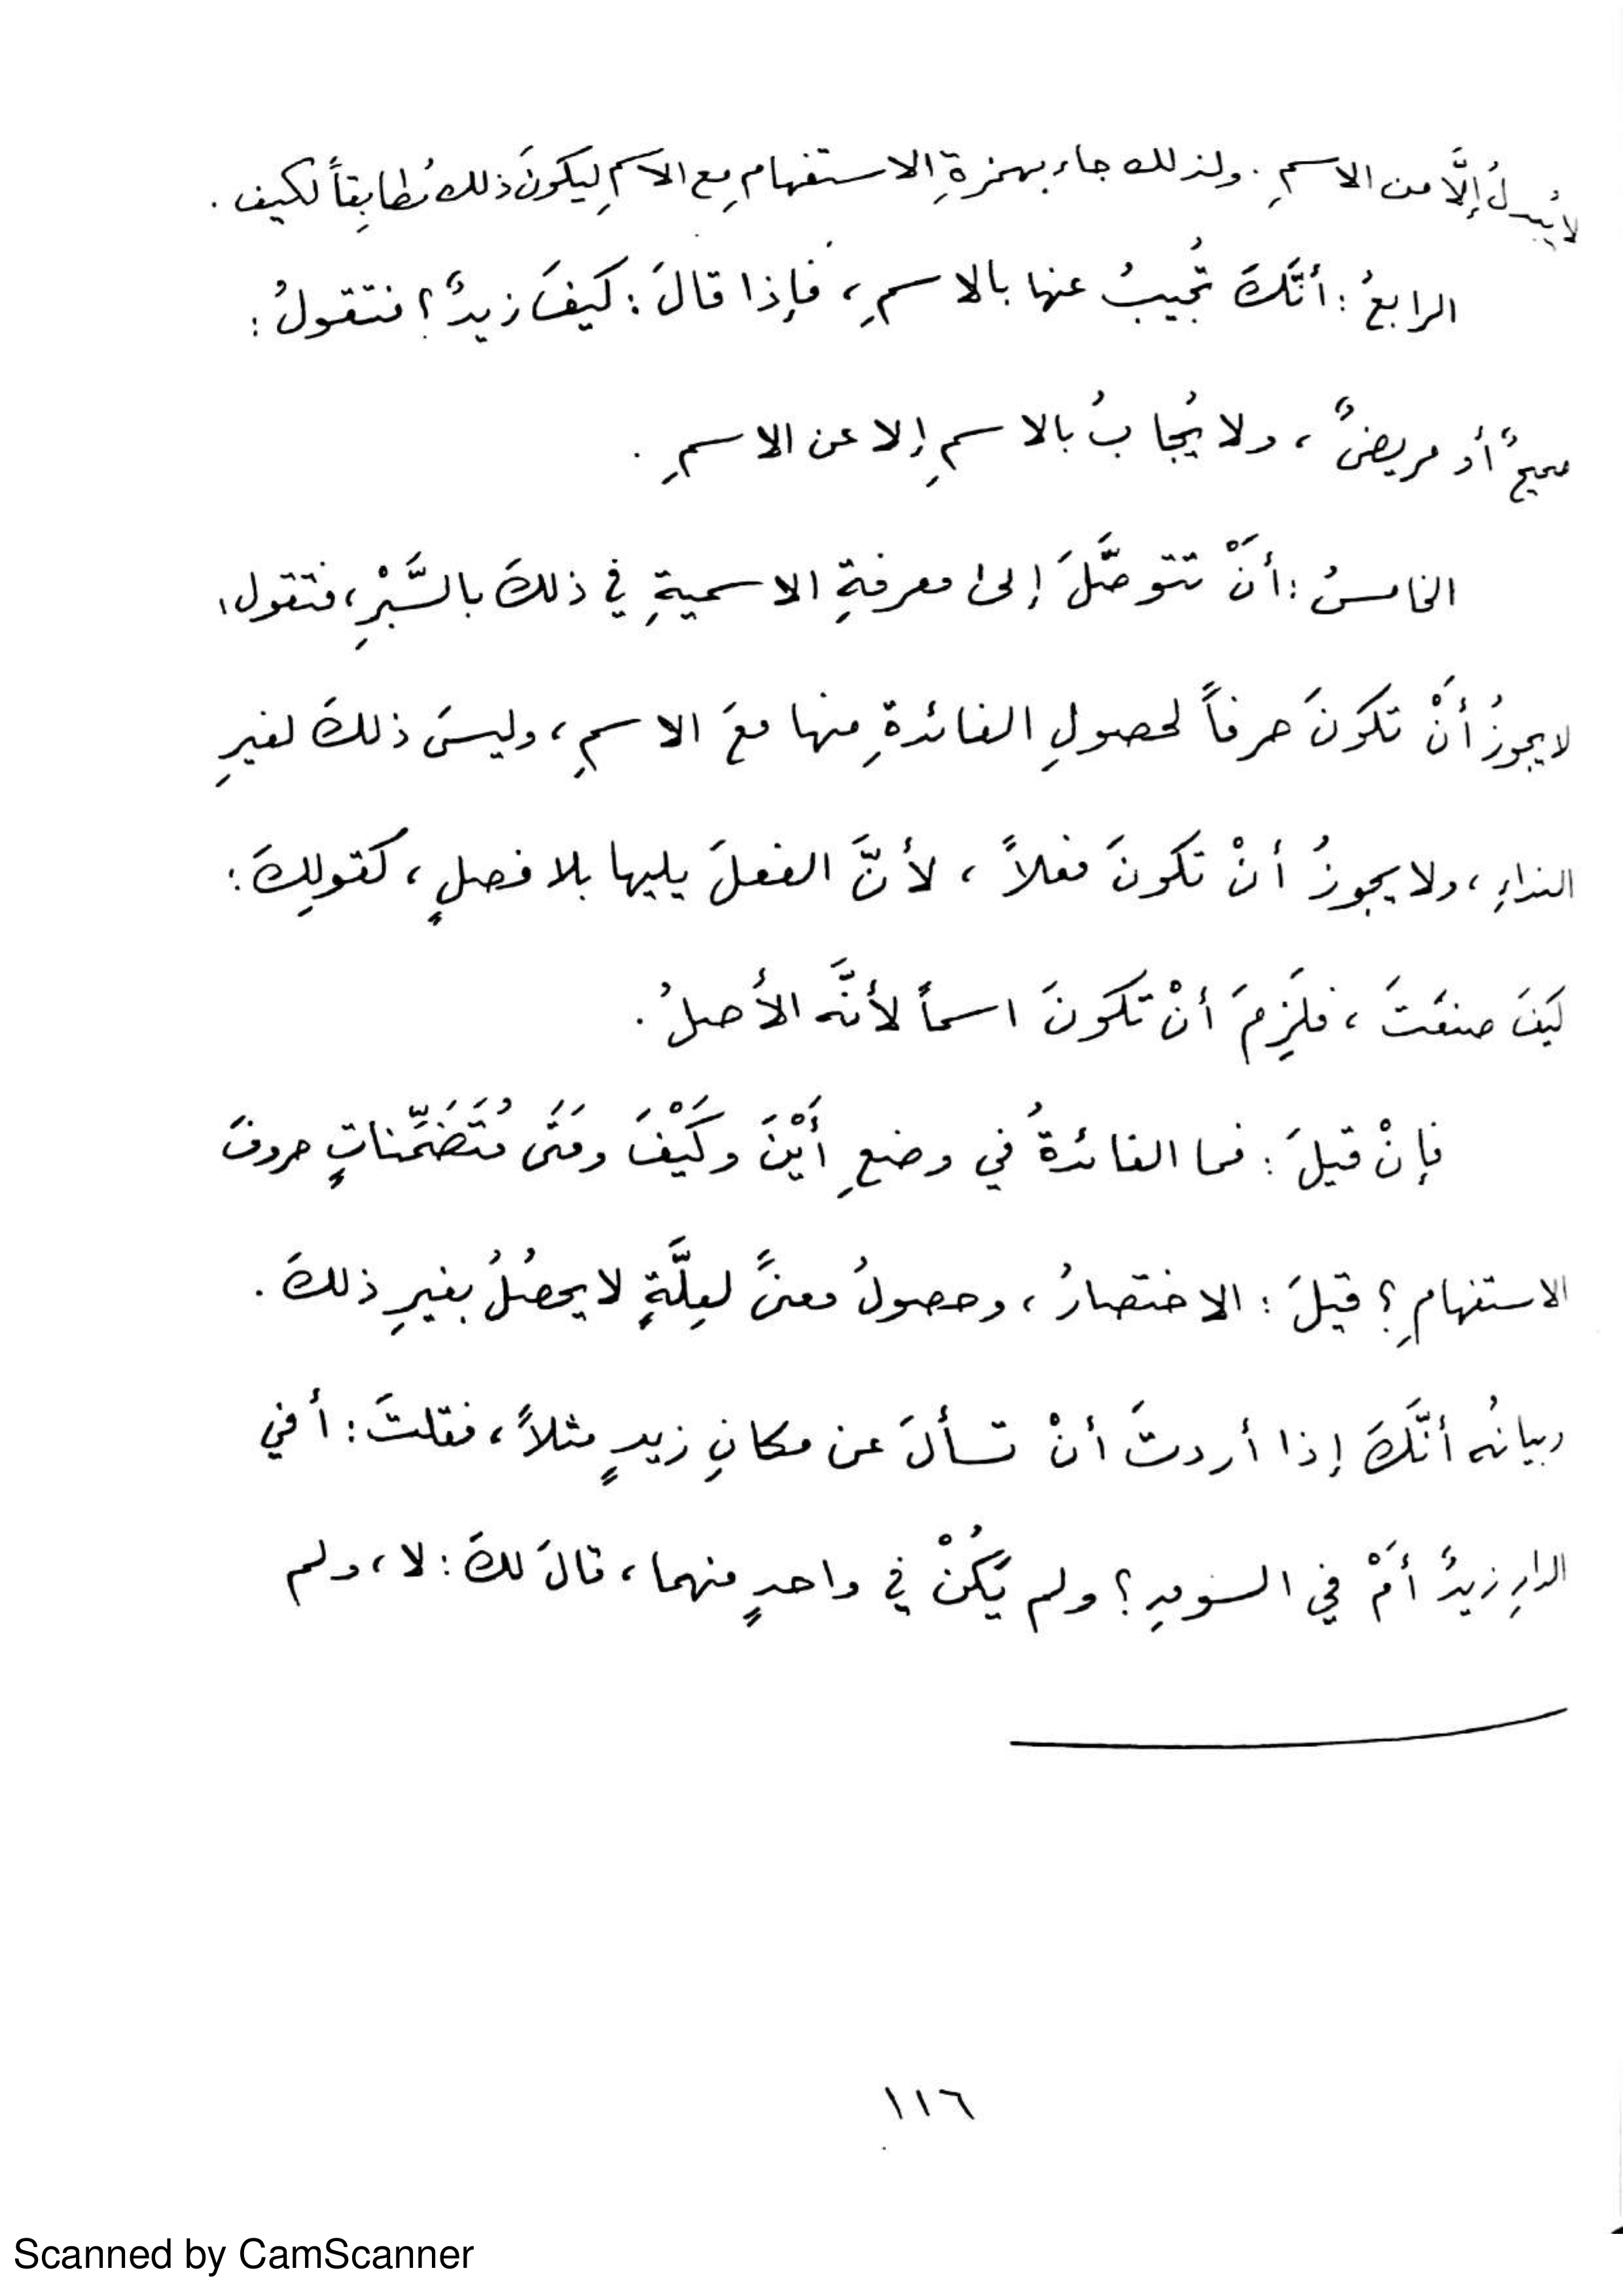 لا يُبدلُ إلَّا من الاسمِ . ولذلك جاء بهمزةِ الاستفهامِ مع الاسمِ لِيكونَ ذلك مُطابِقاً لكيف .
الرابعُ : أنَّكَ تُجيبُ عنها بالاسمِ ، فإذا قالَ : كيفَ زيدٌ ؟ فتقولُ :
صحيحٌ أو مريضٌ ، ولا يُجابُ بالاسمِ إلا عن الاسمِ .
الخامسُ : أنْ تتوصَّلَ إلى معرفةِ الاسميةِ في ذلكَ بالسَّبْرِ ، فتقول :
لا يجوزُ أنْ تكونَ حرفاً لحصولِ الفائدةِ منها معَ الاسمِ ، وليسَ ذلكَ لغيرِ
النداءِ ، ولا يجوزُ أنْ تكونَ فعلاً ، لأنَّ الفعلَ يليها بلا فصلٍ ، كقولِكَ :
كيفَ صنعْتَ ، فلَزِمَ أنْ تكونَ اسماً لأنَّه الأصلُ .
فإنْ قيلَ : فما الفائدةُ في وضعِ أَيْنَ وكَيْفَ ومَتَى مُتَضَمِّناتٍ حروفَ
الاستفهامِ ؟ قيلَ : الاختصارُ ، وحصولُ معنىً لعِلَّةٍ لا يحصُلُ بغيرِ ذلكَ .
وبيانُه أنَّكَ إذا أردتَ أنْ تسألَ عن مكانِ زيدٍ مثلاً ، فقلتَ : أفي
الدارِ زيدٌ أمْ في السوقِ ؟ ولم يَكُنْ في واحدٍ منهما ، قالَ لكَ : لا ، ولم
١١٦
Scanned by CamScanner